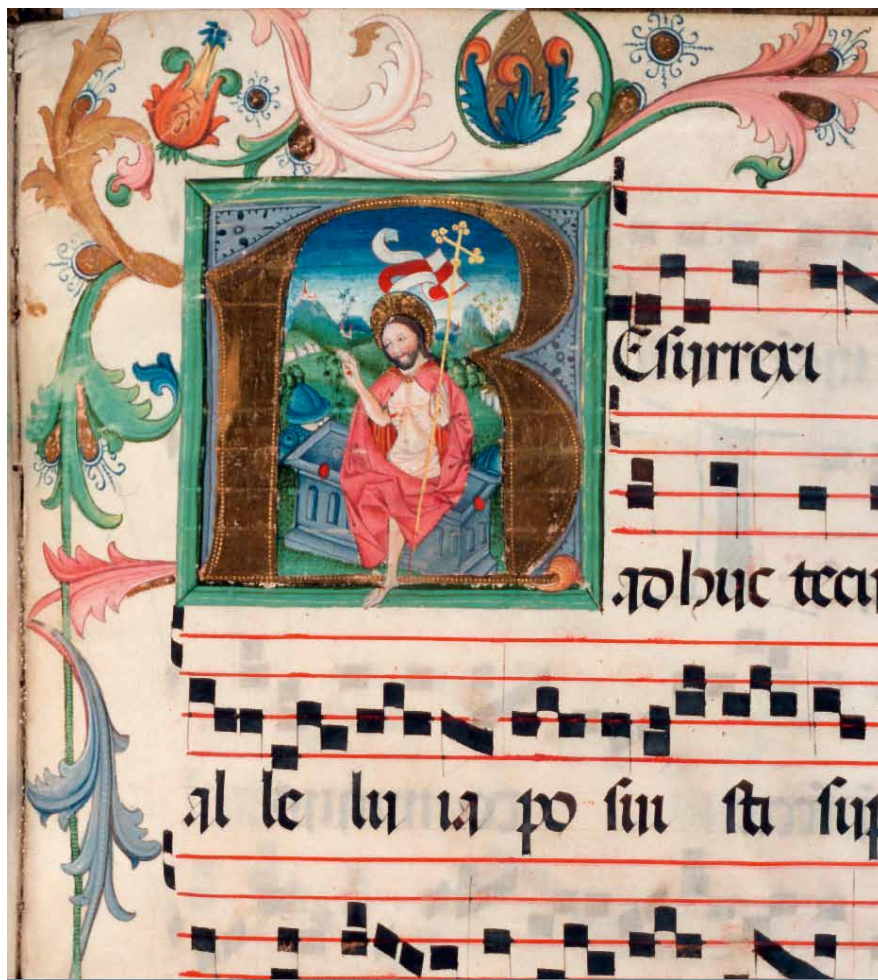 Resurrexi
adhuc tecu
al le lu ia po sui sti sup